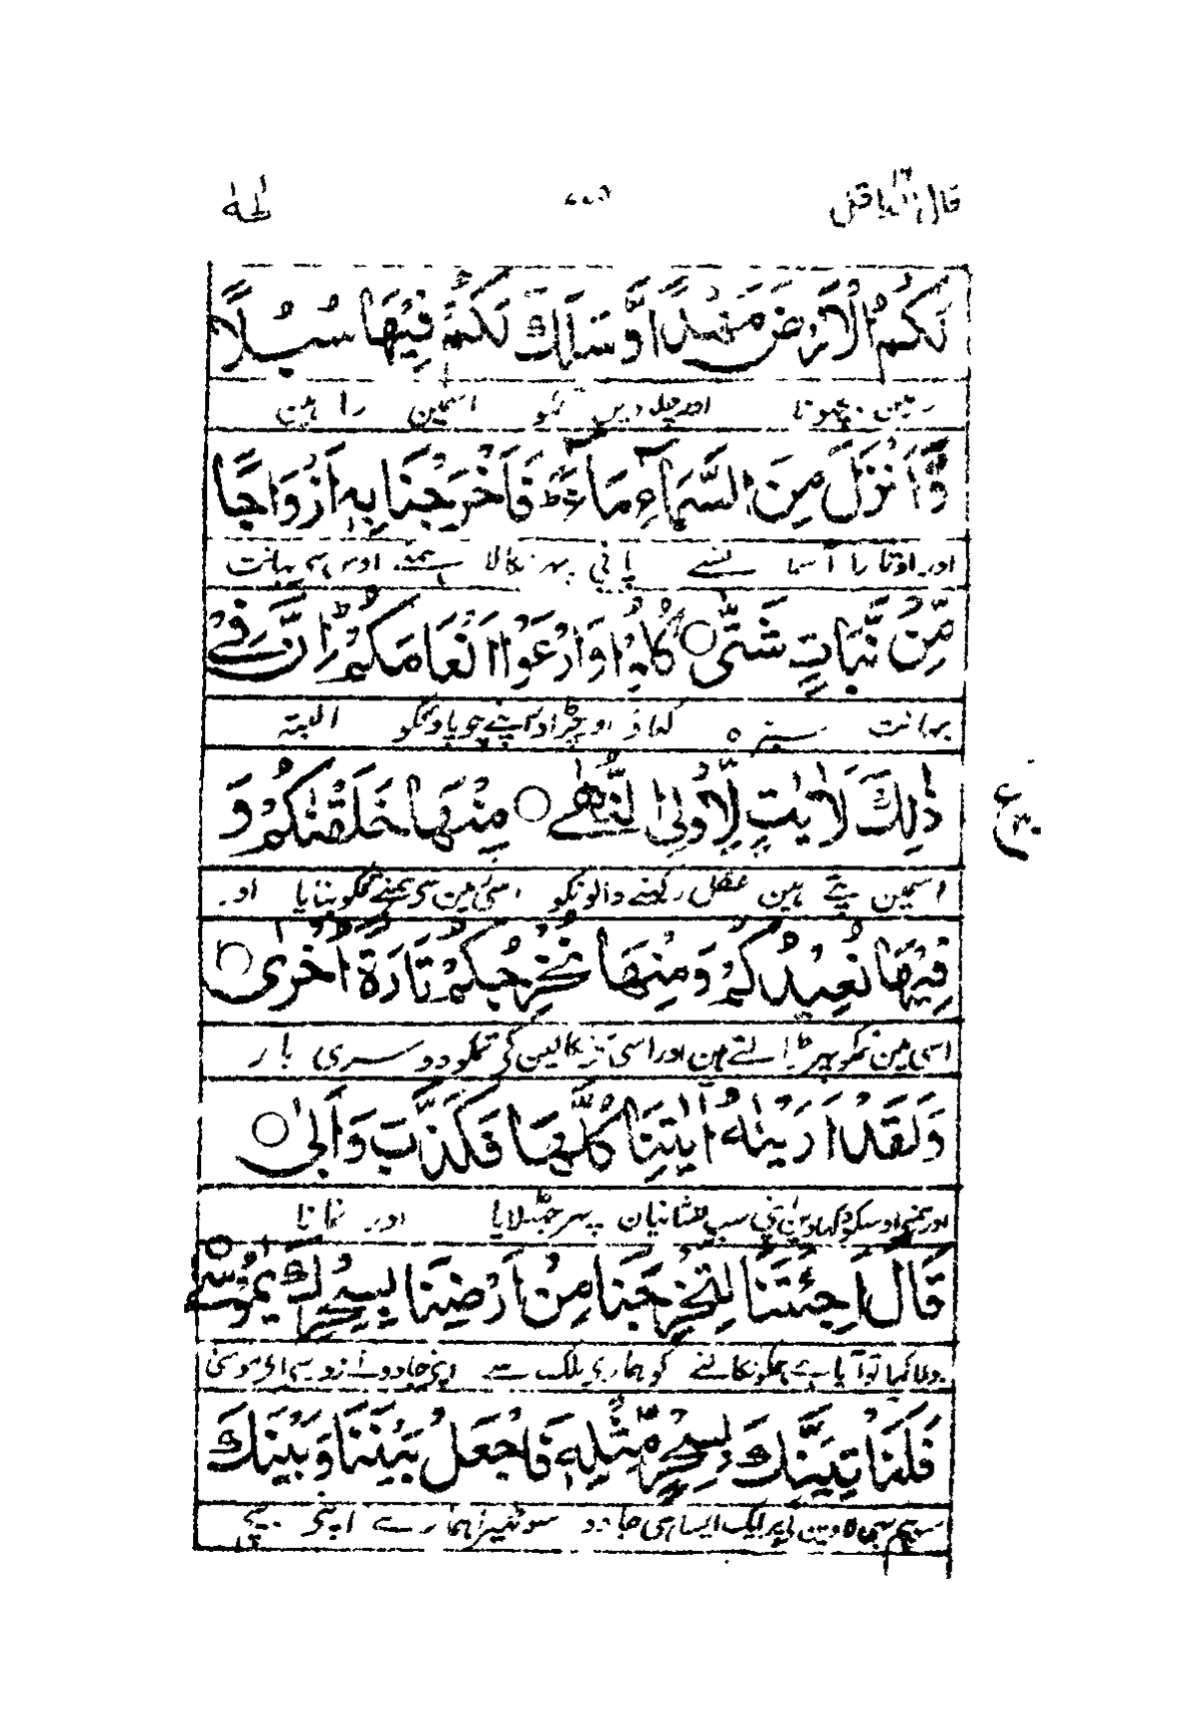 قال الم ١٦ طٰهٰ
لَكُمُ الْاَرْضَ مَهْدًا وَّسَلَكَ لَكُمْ فِيْهَا سُبُلًا
زمین بچھونا اور چلا دیں تمکو اسمین راہین
وَّاَنْزَلَ مِنَ السَّمَآءِ مَآءً ؕ فَاَخْرَجْنَا بِهٖۤ اَزْوَاجًا
اور اوتارا آسمانسے پانی پہر نکالا ہمنے اوس سے بہانت
مِّنْ نَّبَاتٍ شَتّٰى ○ كُلُوْا وَارْعَوْا اَنْعَامَكُمْ ؕ اِنَّ فِيْ
بہانت سبزہ کھاؤ اور چراؤ اپنے چوپاؤنکو البتہ
ذٰلِكَ لَاٰيٰتٍ لِّاُولِى النُّهٰى ○ مِنْهَا خَلَقْنٰكُمْ وَ
ع
اسمین پتے ہین عقل رکہنے والونکو اسی مین سے ہمنے تمکو بنایا اور
فِيْهَا نُعِيْدُكُمْ وَمِنْهَا نُخْرِجُكُمْ تَارَةً اُخْرٰى ○
اسی مین تمکو پہر ڈالتے ہین اور اسی سے نکالین گے تمکو دوسری بار
وَلَقَدْ اَرَيْنٰهُ اٰيٰتِنَا كُلَّهَا فَكَذَّبَ وَاَبٰى ○
اور ہمنے اوسکو دکہا دین اپنی سب نشانیان پہر جھٹلایا اور نمانا
قَالَ اَجِئْتَنَا لِتُخْرِجَنَا مِنْ اَرْضِنَا بِسِحْرِكَ يٰمُوْسٰى ○
بولا کیا تو آیا ہے ہمکو نکالنے کو ہماری ملک سے اپنی جادو کے زور سے اے موسیٰ
فَلَنَاْتِيَنَّكَ بِسِحْرٍ مِّثْلِهٖ فَاجْعَلْ بَيْنَنَا وَبَيْنَكَ
سو ہم بہی لاوین گے ایک ایسا ہی جادو سو ٹھیرا ہمارے اپنے بیچ